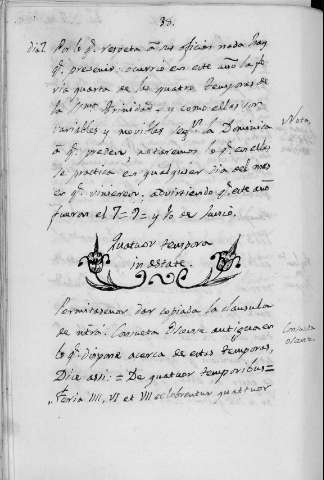 33.
Dia 7. Por lo q. respeta á sus oficios nada hay
q. prevenir, ocurrió en este año la fe
ria quarta de las quatro temporas de
la Trinidad. y como ellas son
variables y movibles seg.n la Dominica
Nota.
á q. preden, notaremos lo q. en ellas
se practica en qualquier dia del mes
en q. vinieren, advirtiendo q. este año
fueron el 7= 9= y 10 de Junio.
Quatuor tempora
in estate.
Permitasenor dar copiada la clausula
de ntrã. Consueta antigua en
Consueta
lo q. dispone acerca de estas temporas,
Dice assi: = De quatuor temporibus=
„ Feria IIII, VI et VII celebrentur quattuor